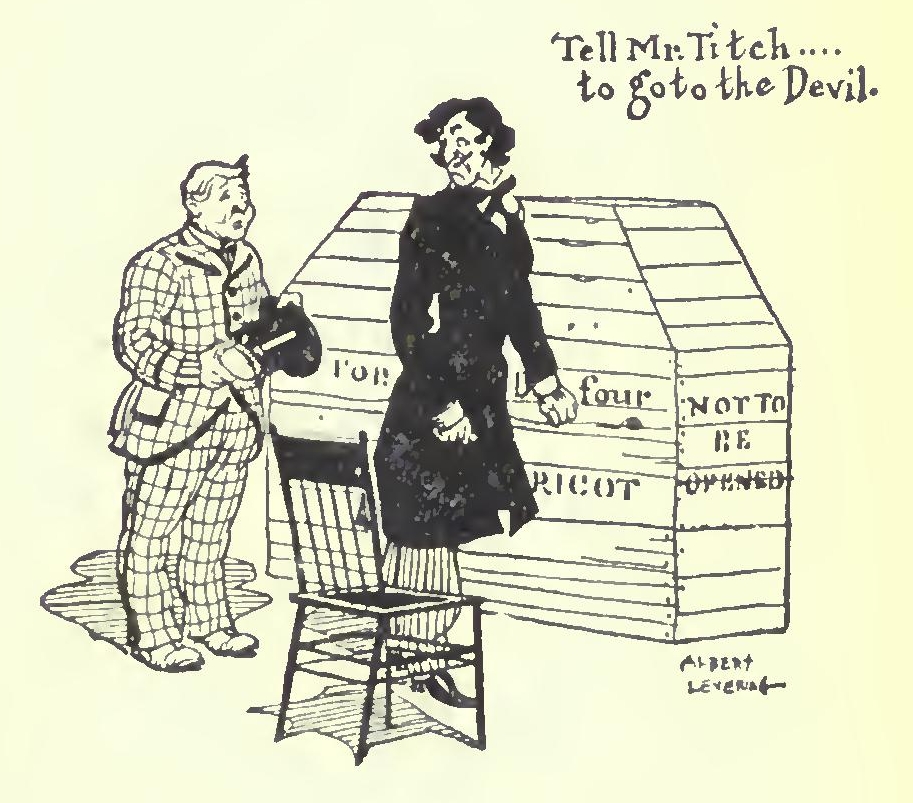 Tell Mr. Titch....
to go to the Devil.
FOR
four
RICOT
NOT TO
BE
OPENED
ALBERT
LEVERING